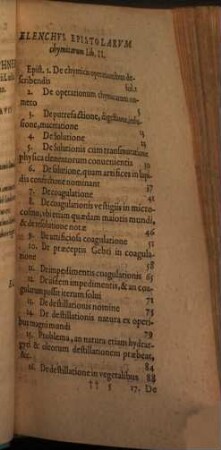 ELENCHVS EPISTOLARVM
chymicarum lib. II.
Epist. 1. De chymica operationibus describendis
fol. 1
2. De operationum chymicarum numero
3. De putrefactione, digestione,
sione, maceratione
4. De solutione
5. De solutionis cum transmutatione
physica elementorum conuenientis
6. De solutione, quam artifices in lapidis confectione nominant 37
7. De coagulatione 41
8. De coagulationis vestigiis in microcosmo, vbi etiam quædam maioris mundi,
& de resolutione notæ 45
9. De artificiosa coagulatione
10. De præceptis Gebri in coagulatione
11. De impedimentis coagulationis 65
12. De iisdem impedimentis, & an coagulatum possit iterum solui 71
13. De destillationis nomine 75
14. De destillationis natura ex operibus magni mundi 79
15. Problema, an natura etiam hydrargyri & aliorum destillationem præbeat,
&c. 84
16. De destillatione in vegetalibus 88
¶¶ 5 17. De